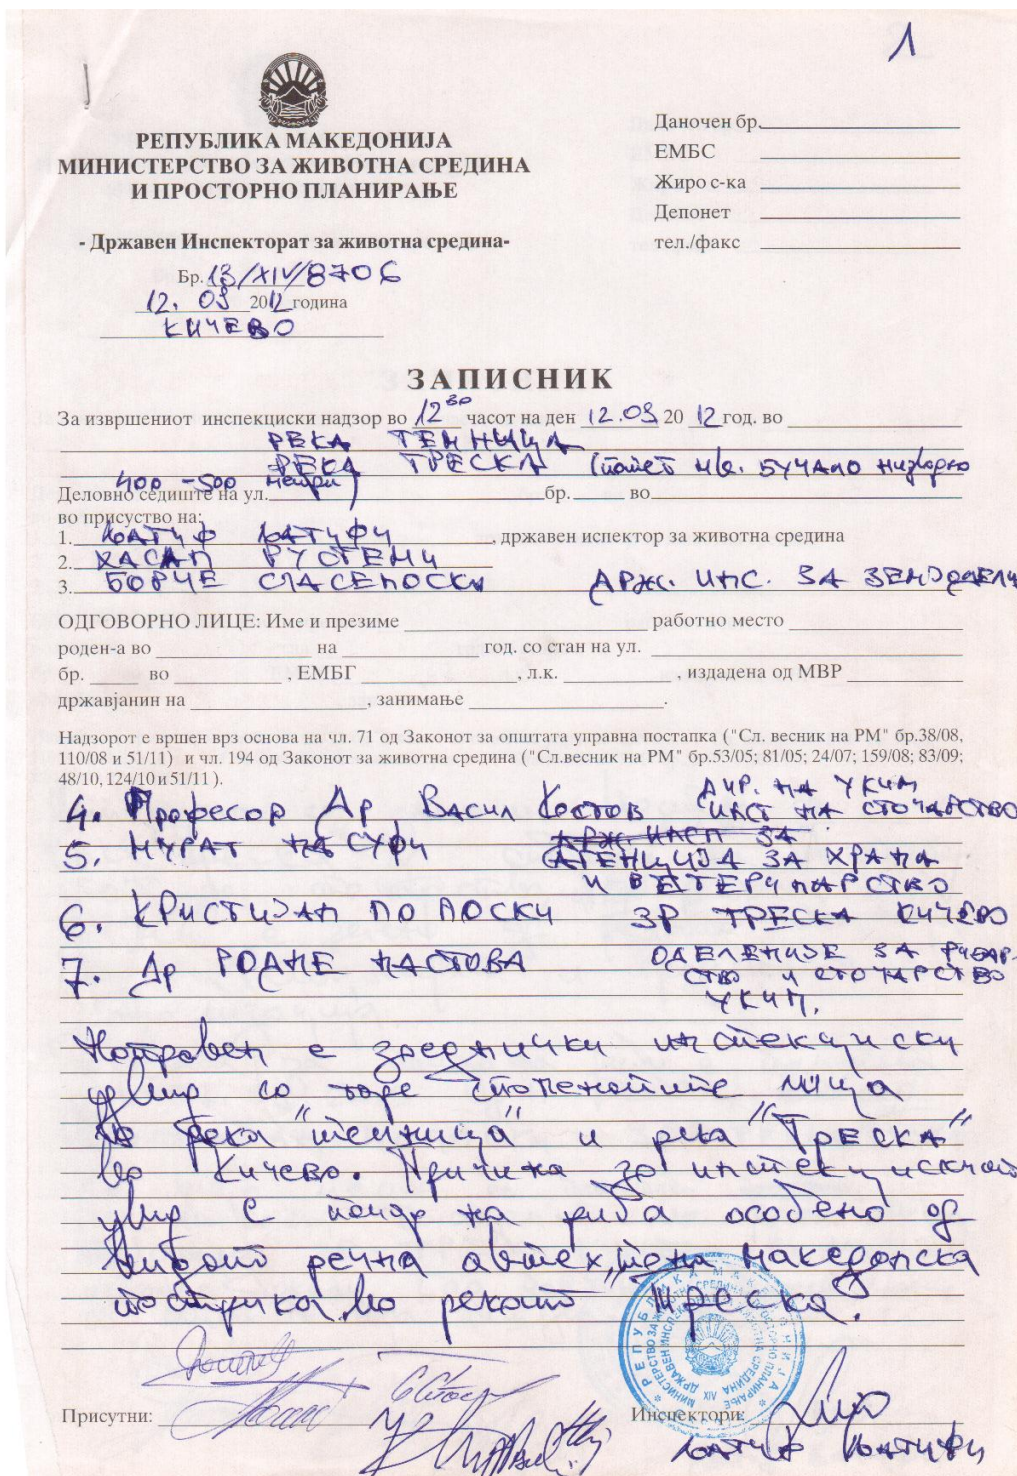 1
РЕПУБЛИКА МАКЕДОНИЈА
МИНИСТЕРСТВО ЗА ЖИВОТНА СРЕДИНА
И ПРОСТОРНО ПЛАНИРАЊЕ
- Државен Инспекторат за животна средина-
Бр. 13/XIV/8706
12. 09 2012 година
КИЧЕВО
Даночен бр.
ЕМБС
Жиро с-ка
Депонет
тел./факс
ЗАПИСНИК
За извршениот инспекциски надзор во 12 30 часот на ден 12.09 20 12 год. во
РЕКА ТЕМНИЦА
РЕКА ТРЕСКА
400 -500 метри)
Деловно седиште на ул. бр. во
во присуство на:
1. ЉАТИФ ЉАТИФИ , државен испектор за животна средина
2. ХАСАН РУСТЕМИ
3. БОРЧЕ СПАСЕНОСКИ ДРЖ. ИНС. ЗА
ОДГОВОРНО ЛИЦЕ: Име и презиме работно место
роден-а во на год. со стан на ул.
бр. во , ЕМБГ , л.к. , издадена од МВР
државјанин на , занимање .
Надзорот е вршен врз основа на чл. 71 од Законот за општата управна постапка ("Сл. весник на РМ" бр.38/08,
110/08 и 51/11) и чл. 194 од Законот за животна средина ("Сл.весник на РМ" бр.53/05; 81/05; 24/07; 159/08; 83/09;
48/10, 124/10 и 51/11 ).
4. Професор Др Васил Костов ДИР. НА УКИМ
ИНСТ НА СТОЧАРСТВО
5. МУРАТ НАСУФИ ДРЖ. ИНСП ЗА
АГЕНЦИЈА ЗА ХРАНА
И ВЕТЕРИНАРСТВО
6. КРИСТИЈАН ПОПОСКИ ЗР ТРЕСКА КИЧЕВО
7. Др РОДНЕ НАСТОВА ОДЕЛЕНИЈЕ ЗА РИБАР-
СТВО И СТОЧАРСТВО
УКИМ.
Направен е зреднички инспекциски
увид со горе споменатите лица
во река "Темница" и река "Треска"
во Кичево. Причина за инспекцискиот
увид е помор на риба особено од
видот речна македонска
во реката Треска.
РЕПУБЛИКА МАКЕДОНИЈА
Присутни:
Инспектори:
ЉАТИФ ЉАТИФИ